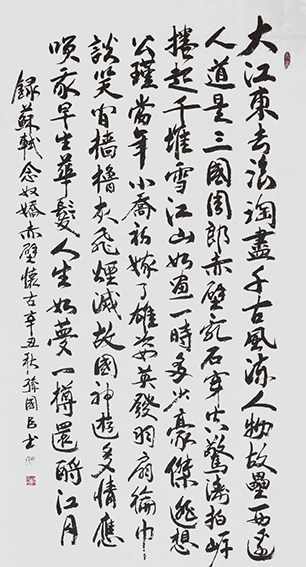 大江東去浪淘盡千古風流人物故壘西邊
人道是三國周郎赤壁亂石穿空驚濤拍岸
捲起千堆雪江山如畫一時多少豪傑遙想
公瑾當年小喬初嫁了雄姿英發羽扇綸巾
談笑間檣櫓灰飛煙滅故國神遊多情應
笑我早生華髮人生如夢一樽還酹江月
錄蘇軾念奴嬌赤壁懷古辛丑秋孫國書